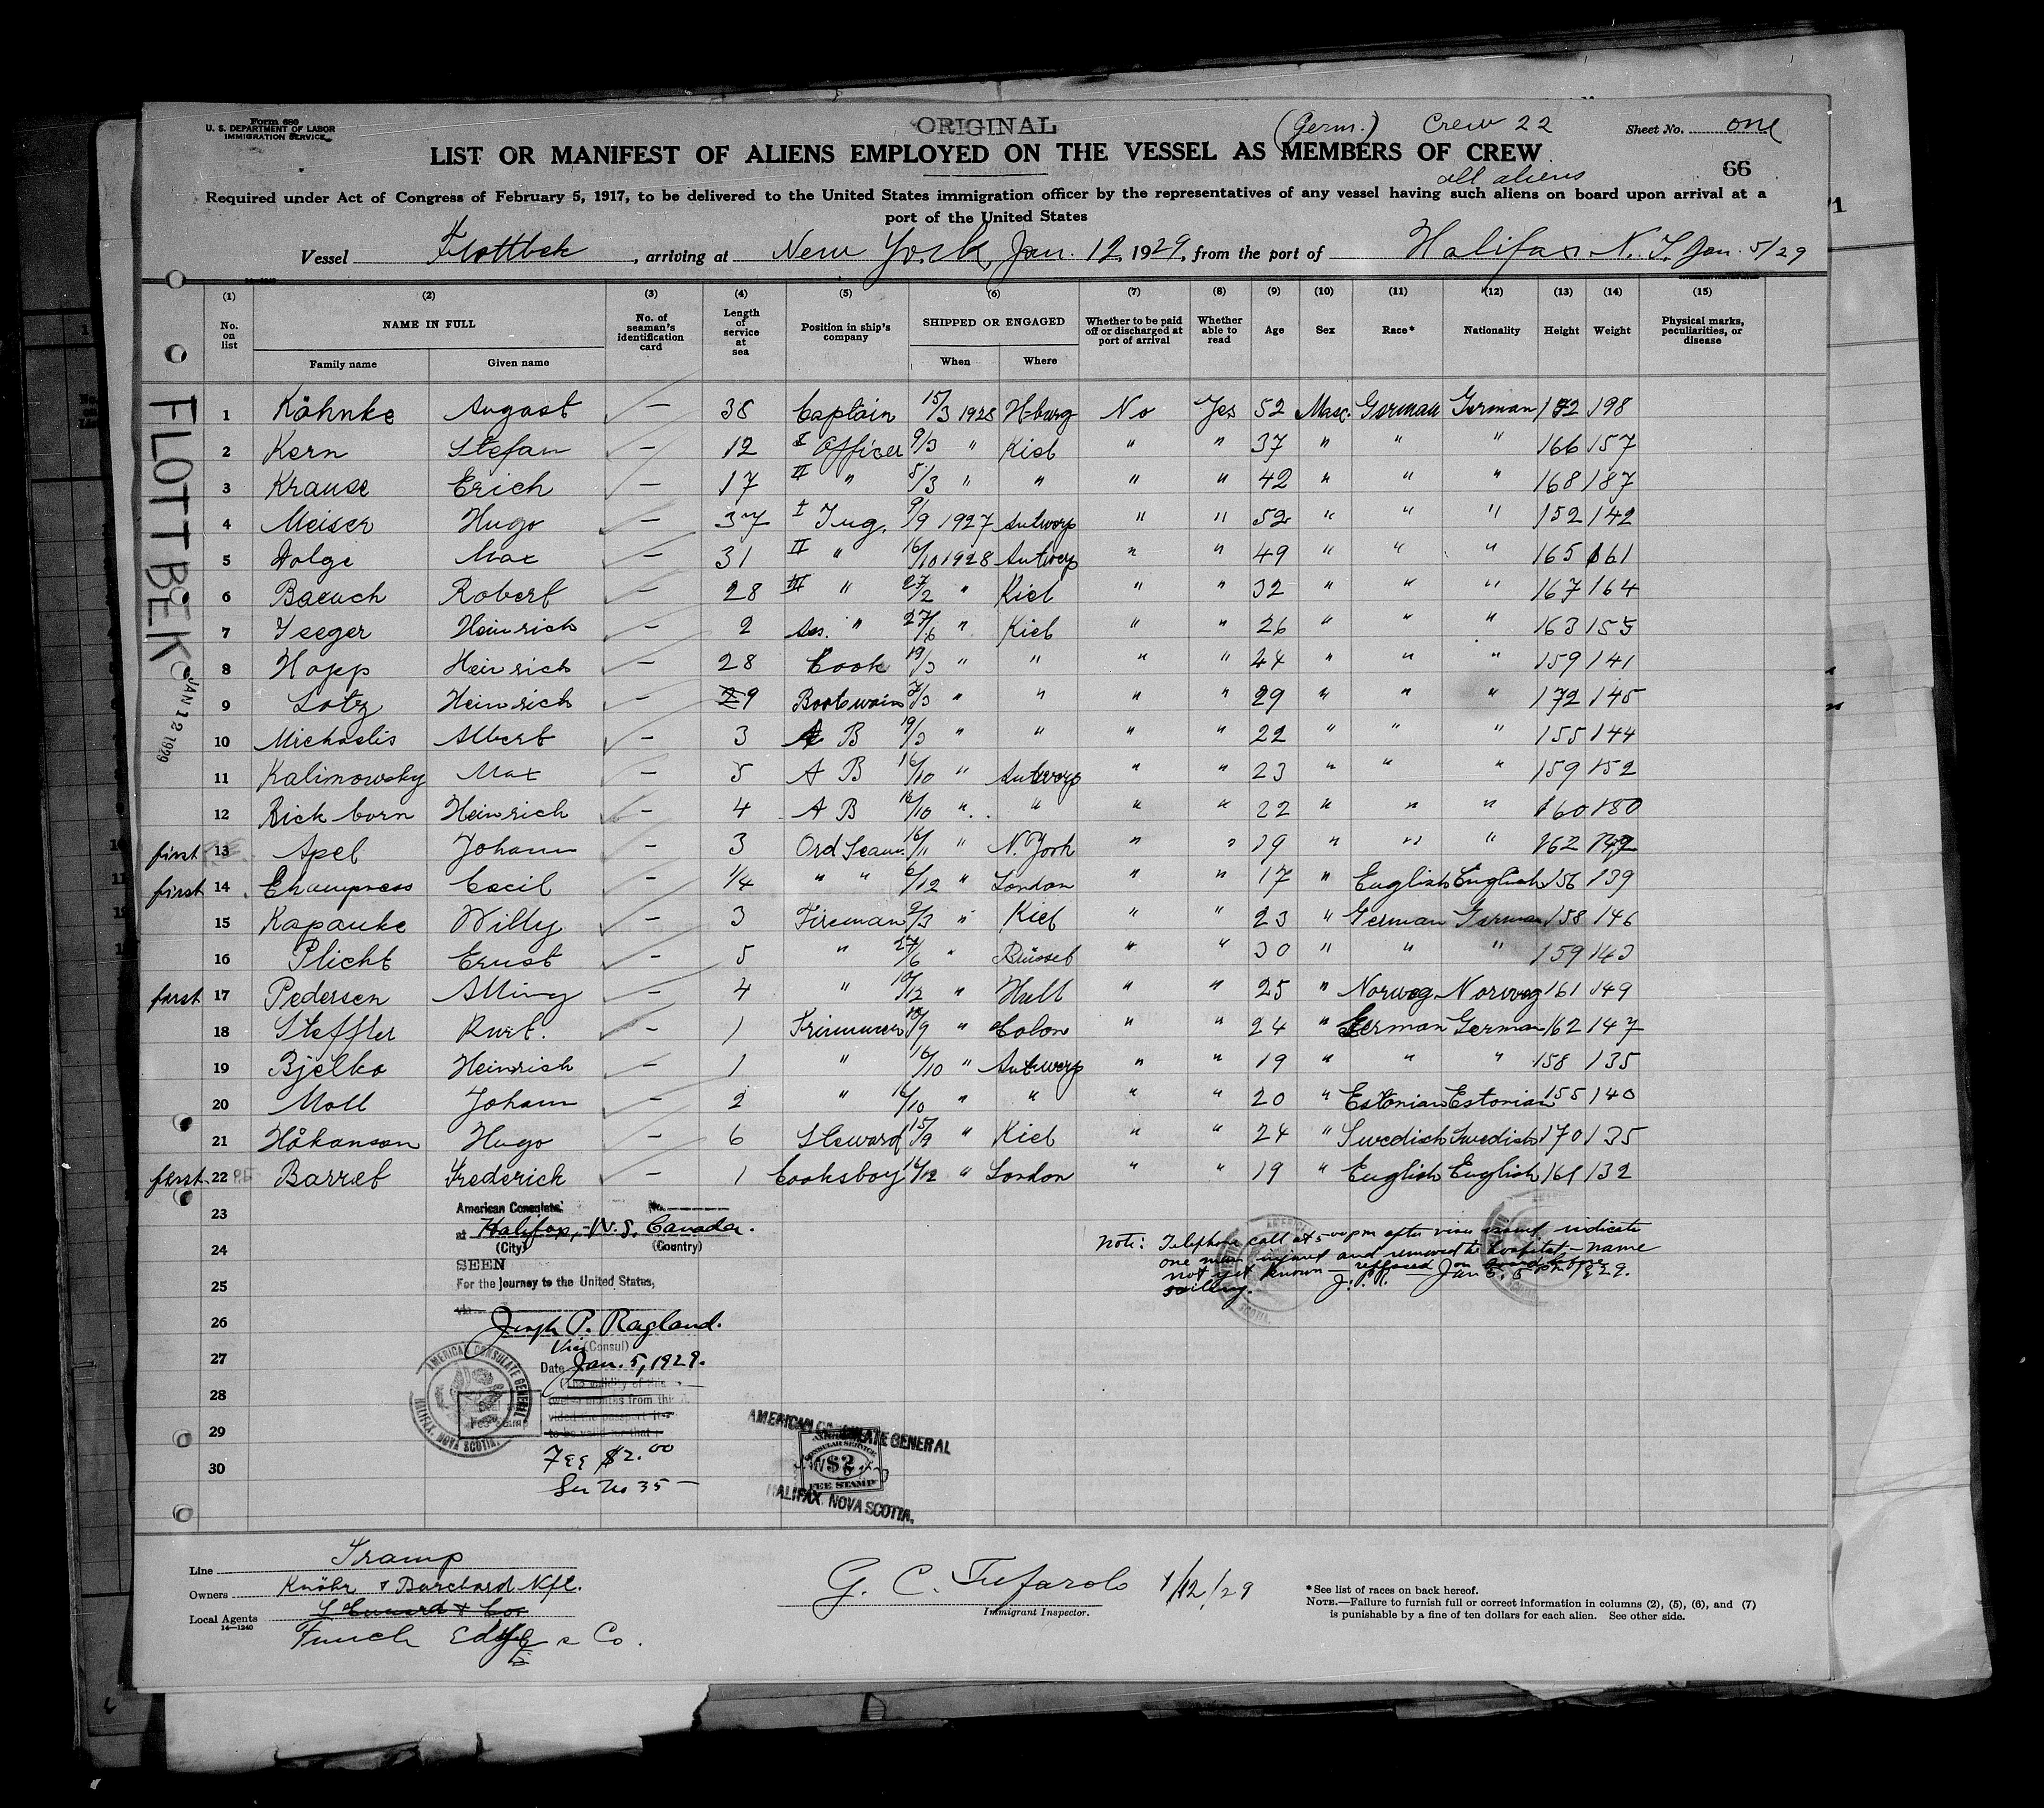 Form 680
U. S. DEPARTMENT OF LABOR
IMMIGRATION SERVICE
ORIGINAL
(Germ.) Crew 22
Sheet No. one
LIST OR MANIFEST OF ALIENS EMPLOYED ON THE VESSEL AS MEMBERS OF CREW
all aliens
66
Required under Act of Congress of February 5, 1917, to be delivered to the United States immigration officer by the representatives of any vessel having such aliens on board upon arrival at a
port of the United States
Vessel Flottbek, arriving at New York, Jan. 12, 1929, from the port of Halifax N.S. Jan. 5/29
(1) (2) (3) (4) (5) (6) (7) (8) (9) (10) (11) (12) (13) (14) (15)
No. on list NAME IN FULL No. of seaman's identification card Length of service at sea Position in ship's company SHIPPED OR ENGAGED Whether to be paid off or discharged at port of arrival Whether able to read Age Sex Race* Nationality Height Weight Physical marks, peculiarities, or disease
Family name Given name When Where
FLOTTBEK
JAN 12 1929
1 Köhnke August — 38 Captain 15/3 1928 H-burg No Yes 52 Masc. German German 172 198
2 Kern Stefan — 12 I Officer 9/3 " Kiel " " 37 " " " 166 157
3 Krause Erich — 17 II " 5/3 " " " " 42 " " " 168 187
4 Meiser Hugo — 37 I Ing. 9/9 1927 Antwerp " " 52 " " " 152 142
5 Dolge Max — 31 II " 16/10 1928 Antwerp " " 49 " " " 165 161
6 Baruch Robert — 28 III " 27/2 " Kiel " " 32 " " " 167 164
7 Jeeger Heinrich — 2 As. " 27/6 " Kiel " " 26 " " " 163 155
8 Hopp Heinrich — 28 Cook 19/3 " " " " 44 " " " 159 141
9 Lotz Heinrich — 9 Bootswain 7/3 " " " " 29 " " " 172 145
10 Michaelis Albert — 3 A B 19/3 " " " " 22 " " " 155 144
11 Kalinowsky Max — 5 A B 16/10 " Antwerp " " 23 " " " 159 152
12 Rickborn Heinrich — 4 A B 16/10 " " " " 22 " " " 160 180
first 13 Apel Johann — 3 Ord Seam. 16/11 " N. York " " 19 " " " 162 142
first 14 Champness Cecil — 1/4 " " 6/12 " London " " 17 " English English 156 139
15 Kapauke Willy — 3 Fireman 9/3 " Kiel " " 23 " German German 158 146
16 Plicht Ernst — 5 " 27/6 " Brüssel " " 30 " " " 159 143
first 17 Pedersen — 4 " 19/12 " Hull " " 25 " Norweg Norweg 161 149
18 Steffler Kurt. — 1 Trimmer 18/9 " Colon " " 24 " German German 162 147
19 Bjelko Heinrich — 1 " 16/10 " Antwerp " " 19 " " " 158 135
20 Moll Johann — 2 " 16/10 " " " " 20 " Estonian Estonian 155 140
21 Håkanson Hugo — 6 Steward 15/9 " Kiel " " 24 " Swedish Swedish 170 135
first 22 Barret Frederick — 1 Cooksboy /12 " London " " 19 " English English 161 132
23
24
25
26
27
28
29
30
American Consulate: No.
at Halifax, N.S. Canada.
(City) (Country)
SEEN
For the journey to the United States,
via
Joseph P. Ragland.
Vice (Consul)
Date Jan. 5, 1929.
AMERICAN CONSULATE GENERAL
HALIFAX, NOVA SCOTIA.
Fee $2.00
Ser No 35 —
AMERICAN CONSULATE GENERAL
CONSULAR SERVICE
$2
FEE STAMP
HALIFAX, NOVA SCOTIA.
Note: Telephone call at 5:00 pm after visa issued, indicate
one man injured and removed to hospital — name
not yet known — replaced on board before
sailing. J.P.R. — Jan 5, 5 pm 1929.
Line Tramp
Owners Knöhr & Burchard Nfl.
Local Agents
14—1240
Funch Edye & Co.
G. C. Tufarolo 1/12/29
Immigrant Inspector.
*See list of races on back hereof.
NOTE.—Failure to furnish full or correct information in columns (2), (5), (6), and (7)
is punishable by a fine of ten dollars for each alien. See other side.